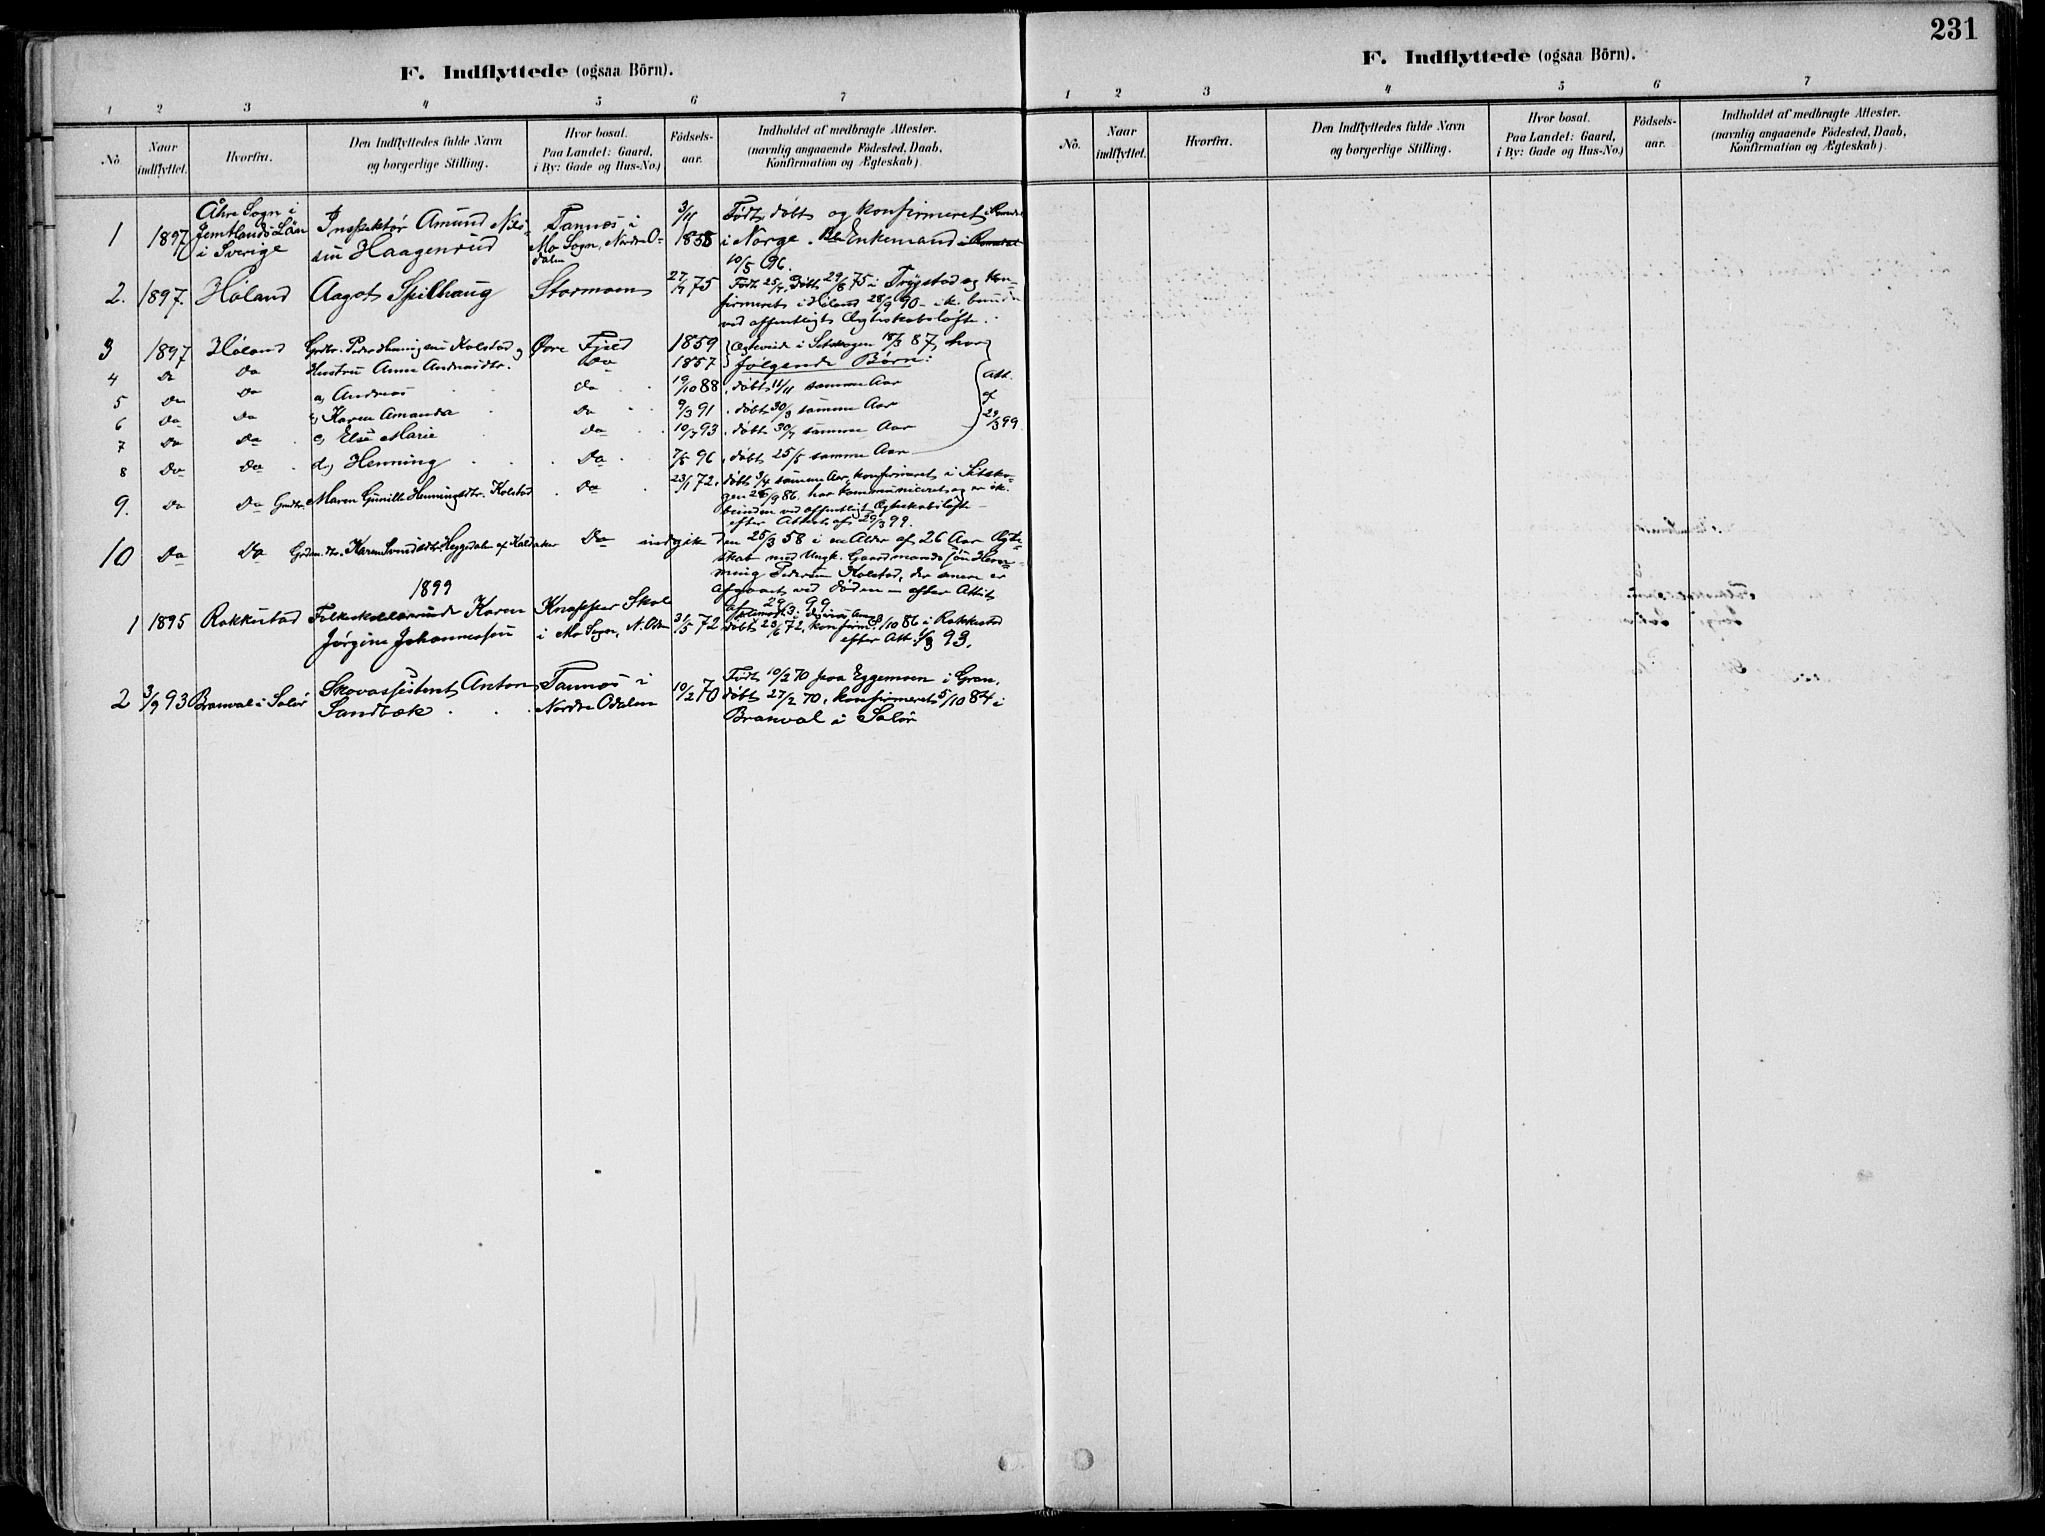 F. Indflyttede (ogsaa Börn).
1 2 3 4 5 6 7
No
Naar indflyttet.
Hvorfra.
Den Indflyttedes fulde Navn
og borgerlige Stilling.
Hvor bosat.
Paa Landet: Gaard,
i By: Gade og Hus-No.)
Födsels-
aar.
Indholdet af medbragte Attester.
(navnlig angaaende Födested, Daab,
Konfirmation og Ægteskab).
1 1897 Åhre Sogn i
Jemtlands Län
i Sverige
Inspektør Amund Nils-
sen Haagenrud
Tannæs i
Mo Sogn, Nordre O-
dalen
3/11
1858
Født, døbt og konfirmeret i Romedal
i Norge. Enkemand
10/5 96.
2. 1897. Høland Aagot Spilhaug Stormoen 27/7 75
Født 25/7, Døbt 29/8 75 i Trygstad og kon-
firmeret i Høland 28/9 90 - ik. bunden
ved offentligt Ægteskabsløfte.
3 1897 Høland Grdbr. Peder Henningsen Kolstad og Øvre Fjeld 1859
Ægteviede i Setskogen 18/3 87, har
4 Do Do Hustru Anne Andreasdtr. Do 1857 følgende Børn:
5 Do Do a, Andreas Do 19/10 88, døbt 11/11 samme Aar
6 Do Do b, Karen Amanda Do 9/3 91, døbt 30/3 samme Aar
7 Do Do c, Else Marie Do 10/7 93, døbt 30/7 samme Aar
8 Do Do d, Henning Do 7/5 96, døbt 25/5 samme Aar
Att.
af
29/3 99
9. Do Do Grdbr. Maren Gunille Henningsdtr. Kolstad Do 23/1 72,
døbt 3/4 samme Aar, konfirmeret i Setsko-
gen 26/9 86, har kommuniceret og er ik.
bunden ved offentligt Ægteskabsløfte
efter Attest af 29/3 99.
10 Do Do Karen Svendsdtr. Heggedalen af Kolsaker Do indgik
den 25/3 58 i en Alder af 26 Aar Ægte-
skab med Ungk. Gaardmandssøn Hen-
ning Pedersen Kolstad, der senere er
afgaaet ved Døden - efter Attest
af 29/3 99
1899
1 1895 Rakkestad Folkeskolelærerinde Karen
Jørgine Johannessen
Knapper Skole
i Mo Sogn, N. Odalen
31/5 72
døbt 23/6 72, konfirm. /10 86 i Rakkestad
efter Att. 93.
2 3/9 93 Branval i Solør Skovassistent Anton
Sandbæk
Tannæs i
Nordre Odalen
10/2 70
Født 10/2 70 paa Eggemoen i Gran,
døbt 27/2 70, konfirmeret 5/10 84 i
Branval i Solør
231
F. Indflyttede (ogsaa Börn).
1 2 3 4 5 6 7
No.
Naar
indflyttet.
Hvorfra.
Den Indflyttedes fulde Navn
og borgerlige Stilling.
Hvor bosat.
Paa Landet: Gaard,
i By: Gade og Hus-No.)
Födsels-
aar.
Indholdet af medbragte Attester.
(navnlig angaaende Födested, Daab,
Konfirmation og Ægteskab).